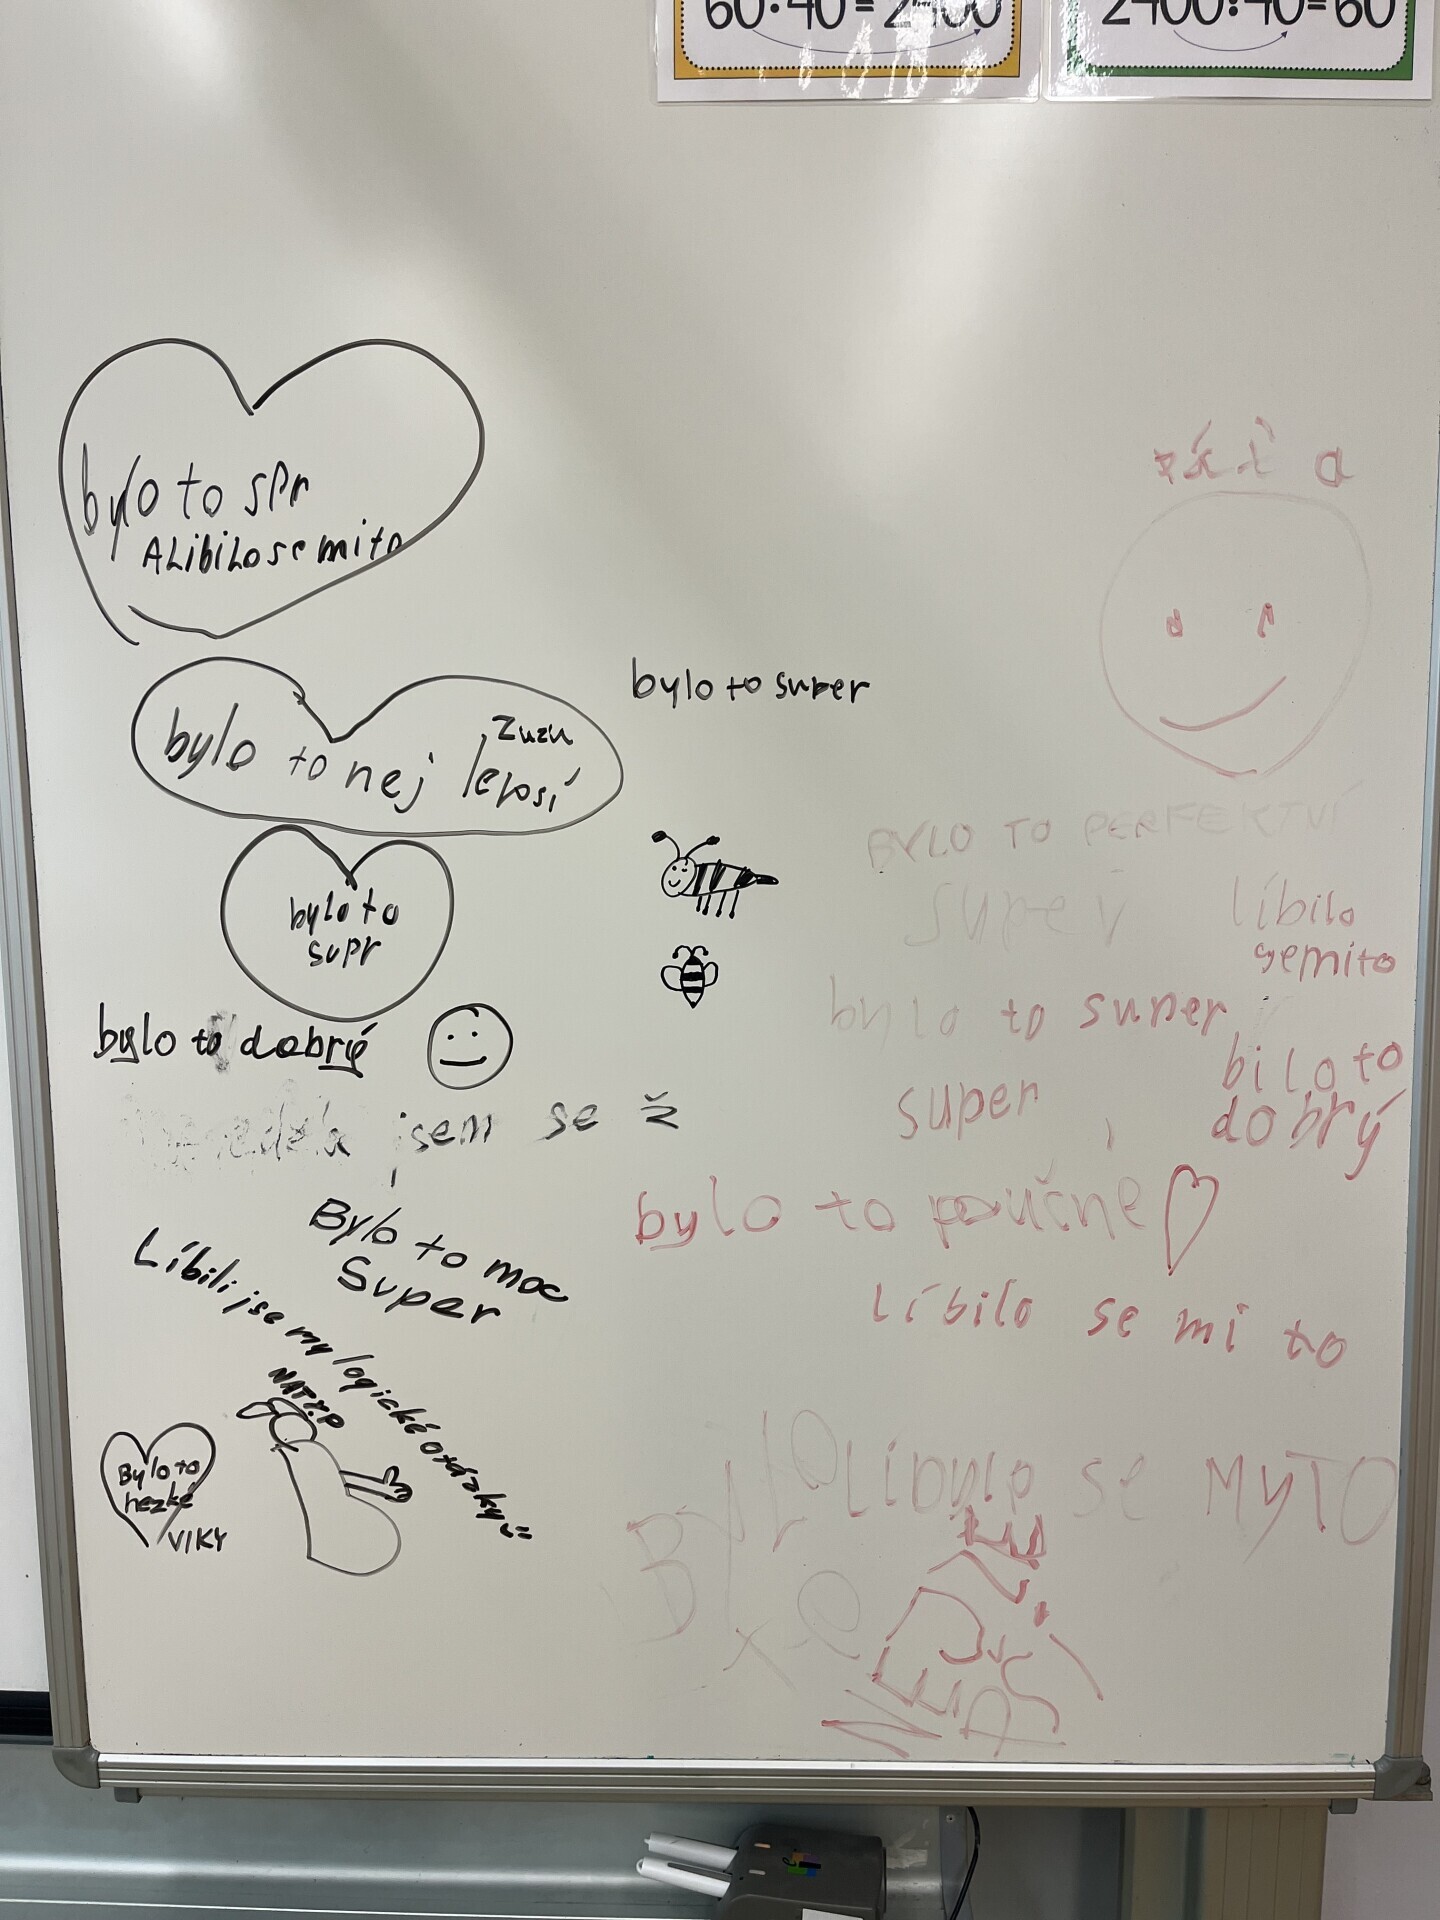 60·40=2400
2400:40=60
bylo to spr
ALibiLo se mi to
bylo to super
Zuzu
bylo to nej lepsí
BYLO TO PERFEKTVÍ
super
líbilo
semito
bylo to
supr
bylo to super
bylo to dobrý
bilo to
dobrý
super
jsem se ž
bylo to poučné
Bylo to moc
Super
Líbili jse my logické otázky
líbilo se mi to
Bylo to
hezké
VIKY
BYLO
se MyTO